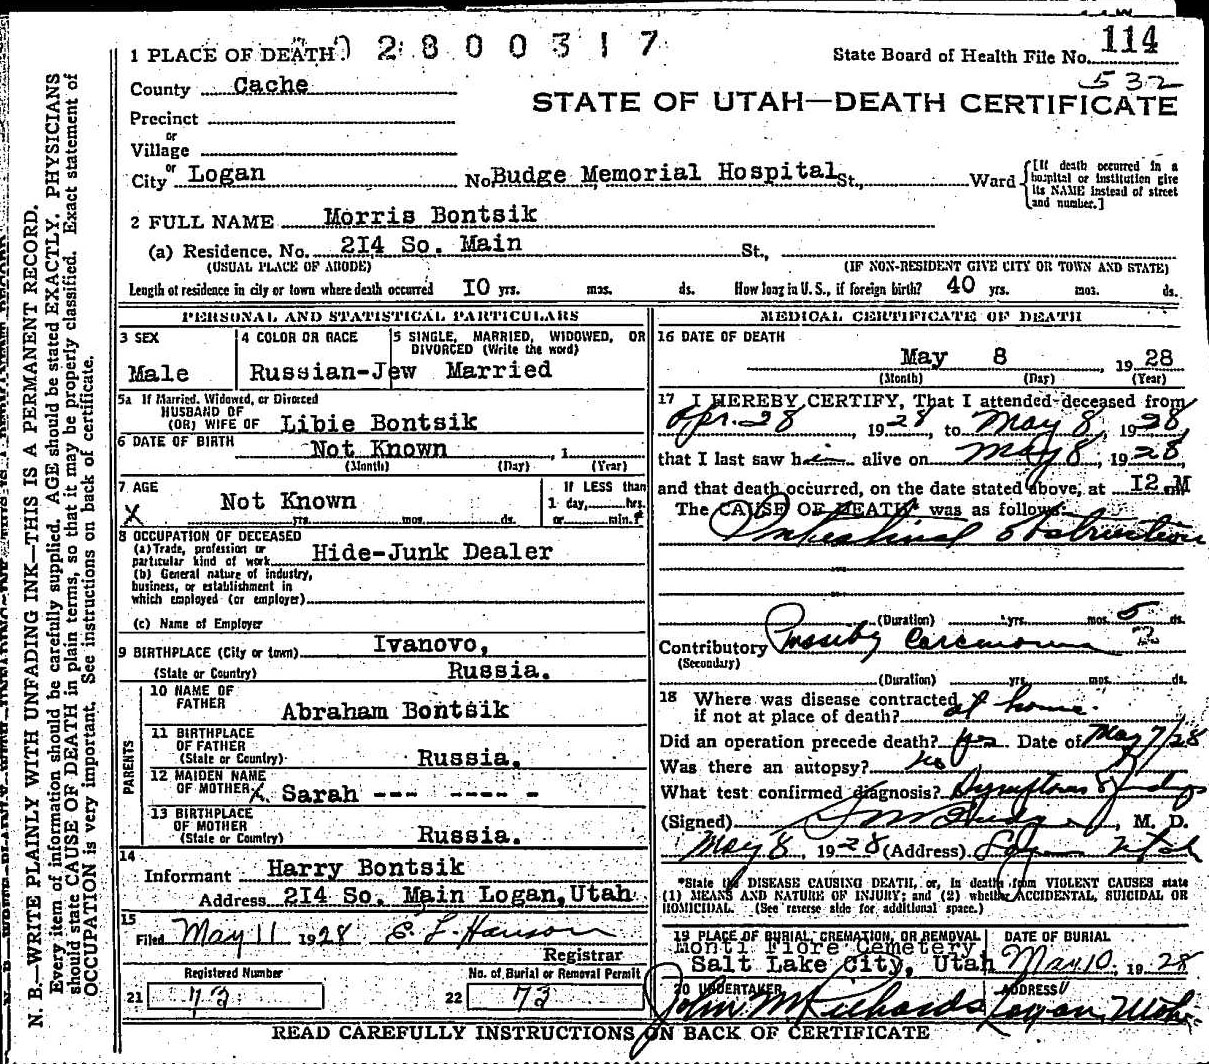 1 PLACE OF DEATH 02800317
State Board of Health File No. 114
532
County Cache
STATE OF UTAH—DEATH CERTIFICATE
Precinct
or
Village
or
City Logan No. Budge Memorial Hospital St., Ward
[If death occurred in a hospital or institution give its NAME instead of street and number.]
2 FULL NAME Morris Bontsik
(a) Residence. No. 2I4 So. Main St.,
(USUAL PLACE OF ABODE) (IF NON-RESIDENT GIVE CITY OR TOWN AND STATE)
Length of residence in city or town where death occurred I0 yrs. mos. ds. How long in U. S., if foreign birth? 40 yrs. mos. ds.
PERSONAL AND STATISTICAL PARTICULARS
3 SEX
Male
4 COLOR OR RACE
Russian-Jew
5 SINGLE, MARRIED, WIDOWED, OR
DIVORCED (Write the word)
Married
5a If Married, Widowed, or Divorced
HUSBAND OF
(OR) WIFE OF Libie Bontsik
6 DATE OF BIRTH Not Known , 1
(Month) (Day) (Year)
7 AGE
Not Known
X yrs. mos. ds.
If LESS than
1 day, hrs.
or min.?
8 OCCUPATION OF DECEASED
(a) Trade, profession or
particular kind of work Hide-Junk Dealer
(b) General nature of industry,
business, or establishment in
which employed (or employer)
(c) Name of Employer
9 BIRTHPLACE (City or town) Ivanovo,
(State or Country) Russia.
PARENTS
10 NAME OF
FATHER Abraham Bontsik
11 BIRTHPLACE
OF FATHER
(State or Country) Russia.
12 MAIDEN NAME
OF MOTHER X Sarah --- ---- -
13 BIRTHPLACE
OF MOTHER
(State or Country) Russia.
14
Informant Harry Bontsik
Address 2I4 So. Main Logan, Utah
15
Filed May 11 1928 E. L. Hanson
Registrar
Registered Number No. of Burial or Removal Permit
21 73 22 73
MEDICAL CERTIFICATE OF DEATH
16 DATE OF DEATH
May 8 , 1928
(Month) (Day) (Year)
17 I HEREBY CERTIFY, That I attended deceased from
Apr. 28, 1928, to May 8, 1928,
that I last saw him alive on May 8, 1928,
and that death occurred, on the date stated above, at I2 M
The CAUSE OF DEATH* was as follows:
Intestinal obstruction
(Duration) yrs. mos. 5 ds.
Contributory Possibly Carcinoma ?
(Secondary)
(Duration) yrs. mos. ds.
18 Where was disease contracted
if not at place of death? at home.
Did an operation precede death? yes Date of May 7/28
Was there an autopsy? no
What test confirmed diagnosis? Symptoms &
(Signed) Budge, M. D.
May 8, 1928 (Address) Logan Utah
*State the DISEASE CAUSING DEATH, or, in deaths from VIOLENT CAUSES state
(1) MEANS AND NATURE OF INJURY; and (2) whether ACCIDENTAL, SUICIDAL OR
HOMICIDAL. (See reverse side for additional space.)
19 PLACE OF BURIAL, CREMATION, OR REMOVAL
Monti Fiore Cemetery
Salt Lake City, Utah
DATE OF BURIAL
May 10, 1928
20 UNDERTAKER
John M Richards
ADDRESS
Logan, Utah.
READ CAREFULLY INSTRUCTIONS ON BACK OF CERTIFICATE
N. B.—WRITE PLAINLY WITH UNFADING INK—THIS IS A PERMANENT RECORD.
Every item of information should be carefully supplied. AGE should be stated EXACTLY. PHYSICIANS
should state CAUSE OF DEATH in plain terms, so that it may be properly classified. Exact statement of
OCCUPATION is very important. See instructions on back of certificate.